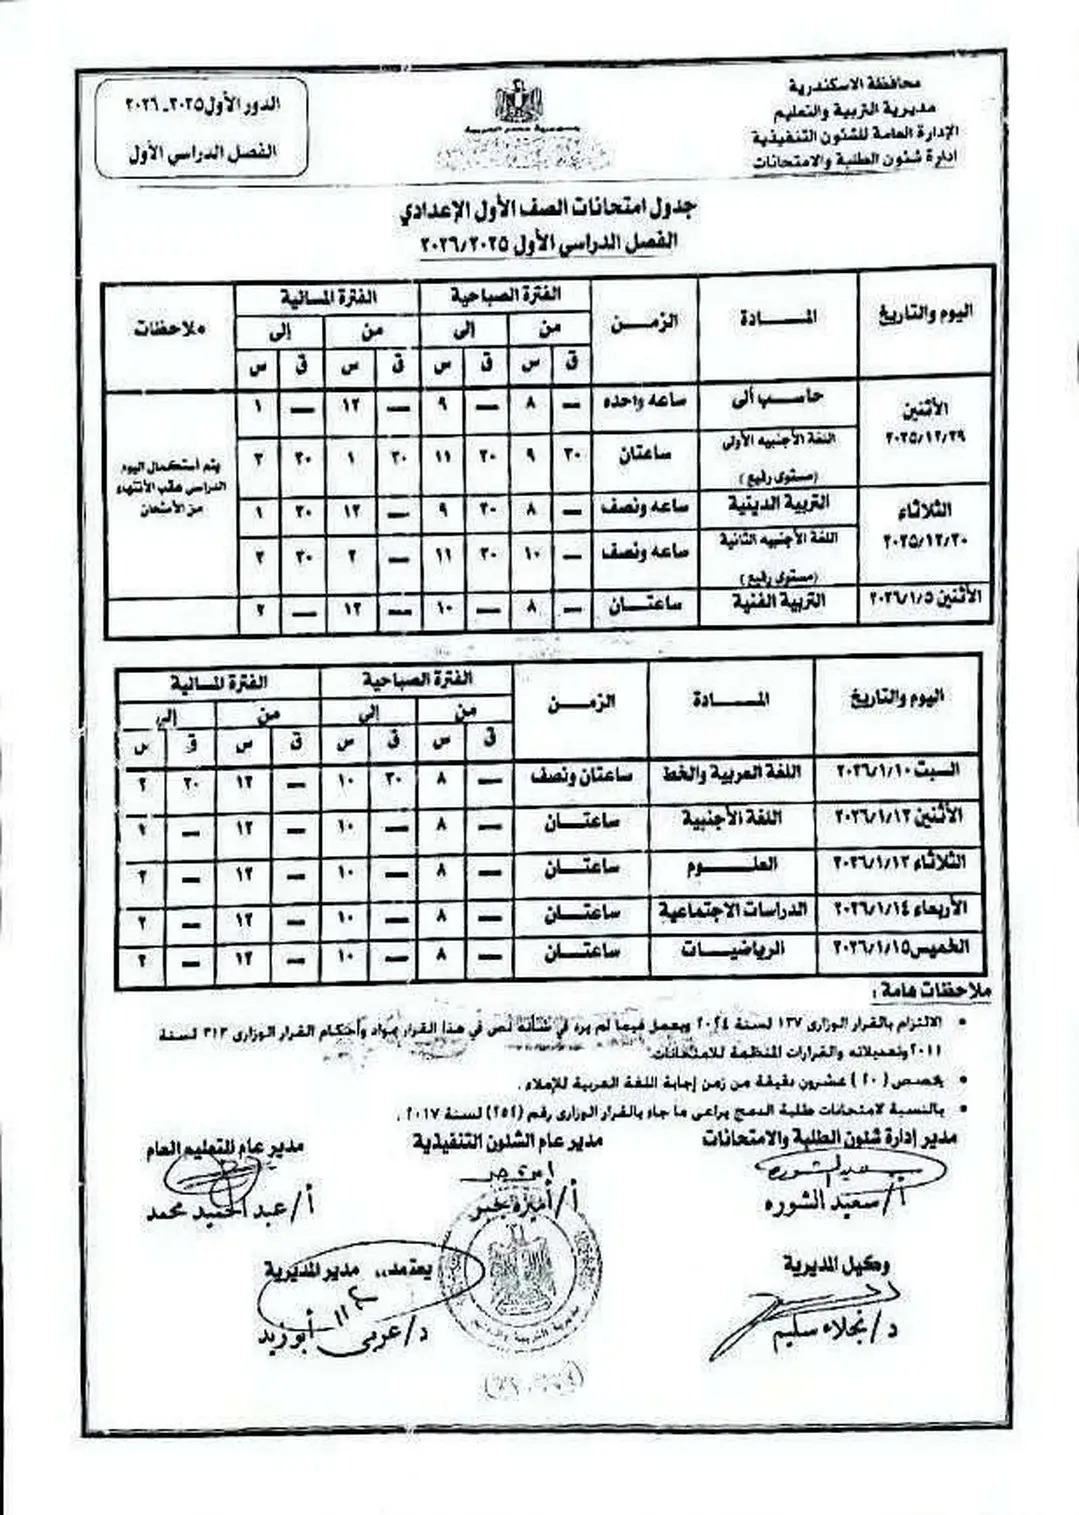 محافظة الاسكندرية
مديرية التربية والتعليم
الإدارة العامة للشئون التنفيذية
إدارة شئون الطلبة والامتحانات
الدور الأول ٢٠٢٥ـ ٢٠٢٦
الفصل الدراسي الأول
جدول امتحانات الصف الأول الإعدادي
الفصل الدراسي الأول ٢٠٢٦/٢٠٢٥
اليوم والتاريخ المـــادة الزمـــن الفترة الصباحية الفترة المسائية ملاحظات
من إلى من إلى
ق س ق س ق س ق س
الأثنين ٢٠٢٥/١٢/٢٩ حاسب ألى ساعه واحده — ٨ — ٩ — ١٢ — ١
اللغة الأجنبيه الأولى (مستوى رفيع) ساعتان ٣٠ ٩ ٣٠ ١١ ٣٠ ١ ٣٠ ٣
الثلاثاء ٢٠٢٥/١٢/٣٠ التربية الدينية ساعه ونصف — ٨ ٣٠ ٩ — ١٢ ٣٠ ١
اللغة الأجنبيه الثانية (مستوى رفيع) ساعه ونصف — ١٠ ٣٠ ١١ — ٢ ٣٠ ٣
الأثنين ٢٠٢٦/١/٥ التربية الفنية ساعتـــان — ٨ — ١٠ — ١٢ — ٢
يتم أستكمال اليوم
الدراسى عقب الأنتهاء
من الأمتحان
اليوم والتاريخ المـــادة الزمـــن الفترة الصباحية الفترة المسائية
من إلى من إلى
ق س ق س ق س ق س
السبت ٢٠٢٦/١/١٠ اللغة العربية والخط ساعتان ونصف — ٨ ٣٠ ١٠ — ١٢ ٣٠ ٢
الأثنين ٢٠٢٦/١/١٢ اللغة الأجنبية ساعتـــان — ٨ — ١٠ — ١٢ — ٢
الثلاثاء ٢٠٢٦/١/١٣ العلـــوم ساعتـــان — ٨ — ١٠ — ١٢ — ٢
الأربعاء ٢٠٢٦/١/١٤ الدراسات الاجتماعية ساعتـــان — ٨ — ١٠ — ١٢ — ٢
الخميس ٢٠٢٦/١/١٥ الرياضيـــات ساعتـــان — ٨ — ١٠ — ١٢ — ٢
ملاحظات هامة :
• الالتزام بالقرار الوزارى ١٣٧ لسنة ٢٠٢٤ ويعمل فيما لم يرد في شأنه نص في هذا القرار بمواد وأحكام القرار الوزارى ٣١٣ لسنة
٢٠١١ وتعديلاته والقرارات المنظمة للامتحانات
• يخصص (٢٠) عشرون دقيقة من زمن إجابة اللغة العربية للإملاء .
• بالنسبة لامتحانات طلبة الدمج يراعى ما جاء بالقرار الوزارى رقم (٢٥٢) لسنة ٢٠١٧ .
مدير إدارة شئون الطلبة والامتحانات مدير عام الشئون التنفيذية مدير عام للتعليم العام
أ/ سعيد الشوره أ/ أميرة جبر أ/ عبد الحميد محمد
وكيل المديرية يعتمد،، مدير المديرية
د/ نجلاء سليم د/ عربى أبوزيد